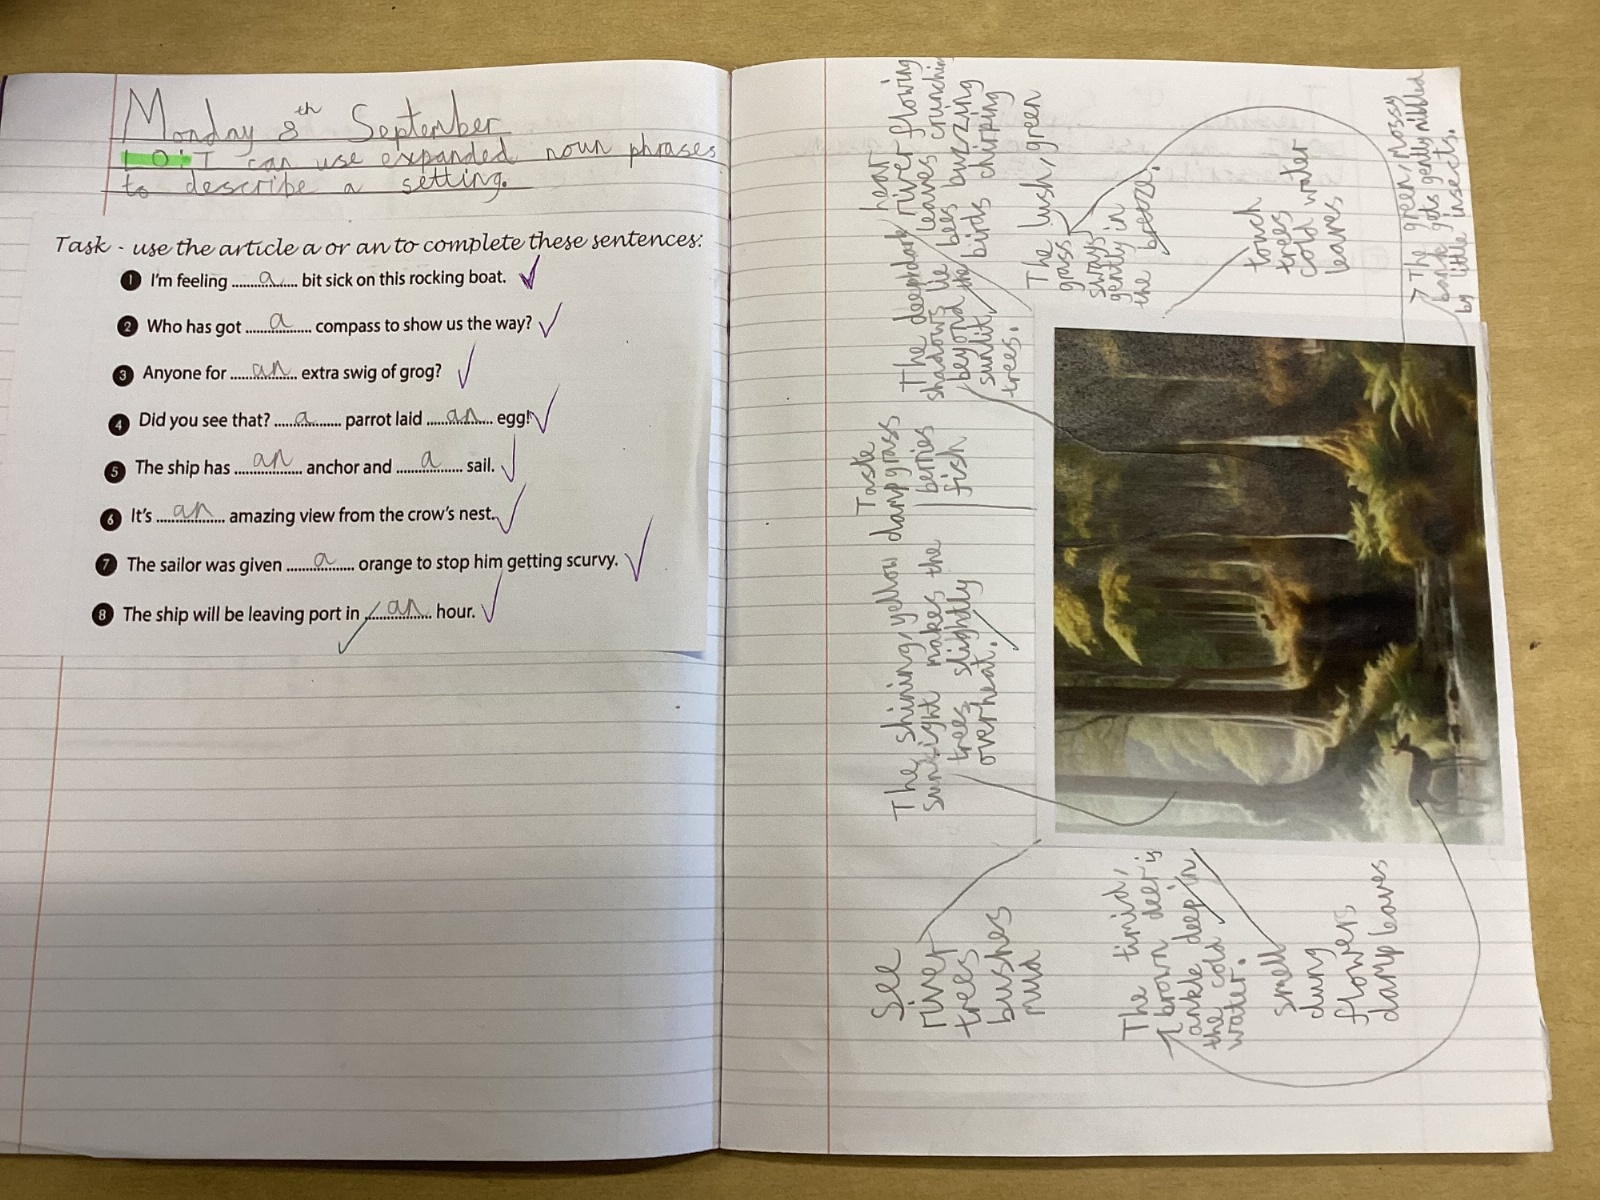 Monday 8th September
LO: I can use expanded noun phrases
to describe a setting.
Task - use the article a or an to complete these sentences:
1 I'm feeling a bit sick on this rocking boat.
2 Who has got a compass to show us the way?
3 Anyone for an extra swig of grog?
4 Did you see that? a parrot laid an egg!
5 The ship has an anchor and a sail.
6 It's an amazing view from the crow's nest.
7 The sailor was given a orange to stop him getting scurvy.
8 The ship will be leaving port in an hour.
See
river
trees
bushes
mud
The shining, yellow
sunsight makes the
trees slightly
overheat.
Taste
damp grass
berries
fish
The deep dark
shadows lie
beyond the
sunlit
trees.
hear
river flowing
leaves crunching
bees buzzing
birds chirping
The lush, green
grass
sways
gently in
the breeze.
touch
trees
cold water
leaves
The green, mossy
bank gets gently nibbled
by little insects.
The timid,
brown deer is
ankle deep in
the cold
water.
smell
dung
flowers
damp leaves